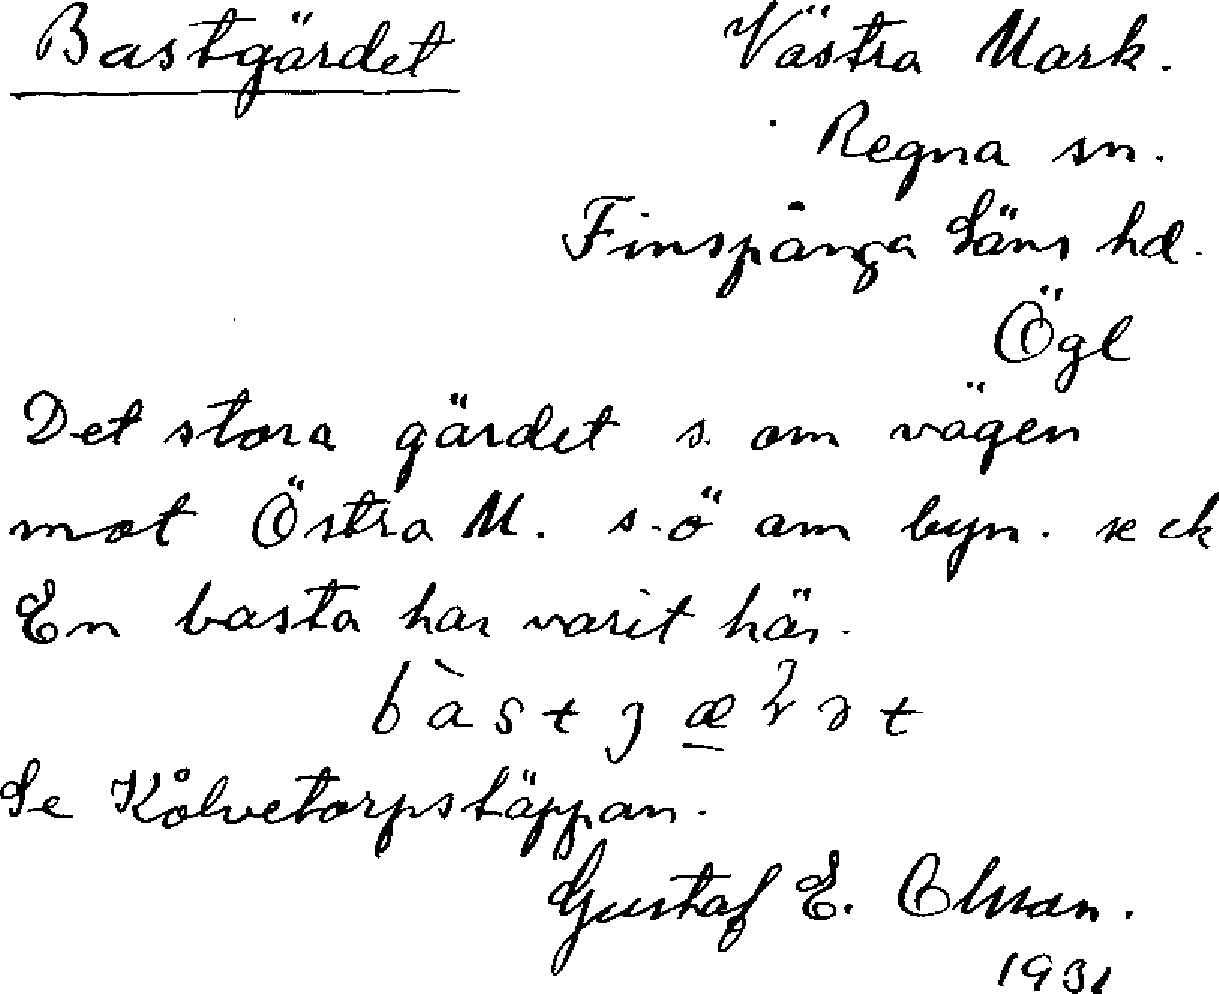 Bastgärdet Västra Mark.
Regna sn.
Finspånga Läns hd.
Ögl
Det stora gärdet s. om vägen
mot Östra M. s.ö om byn. se ek
En basta har varit här.
Se Kålvetorpstäppan.
Gustaf E. Olsson.
1931